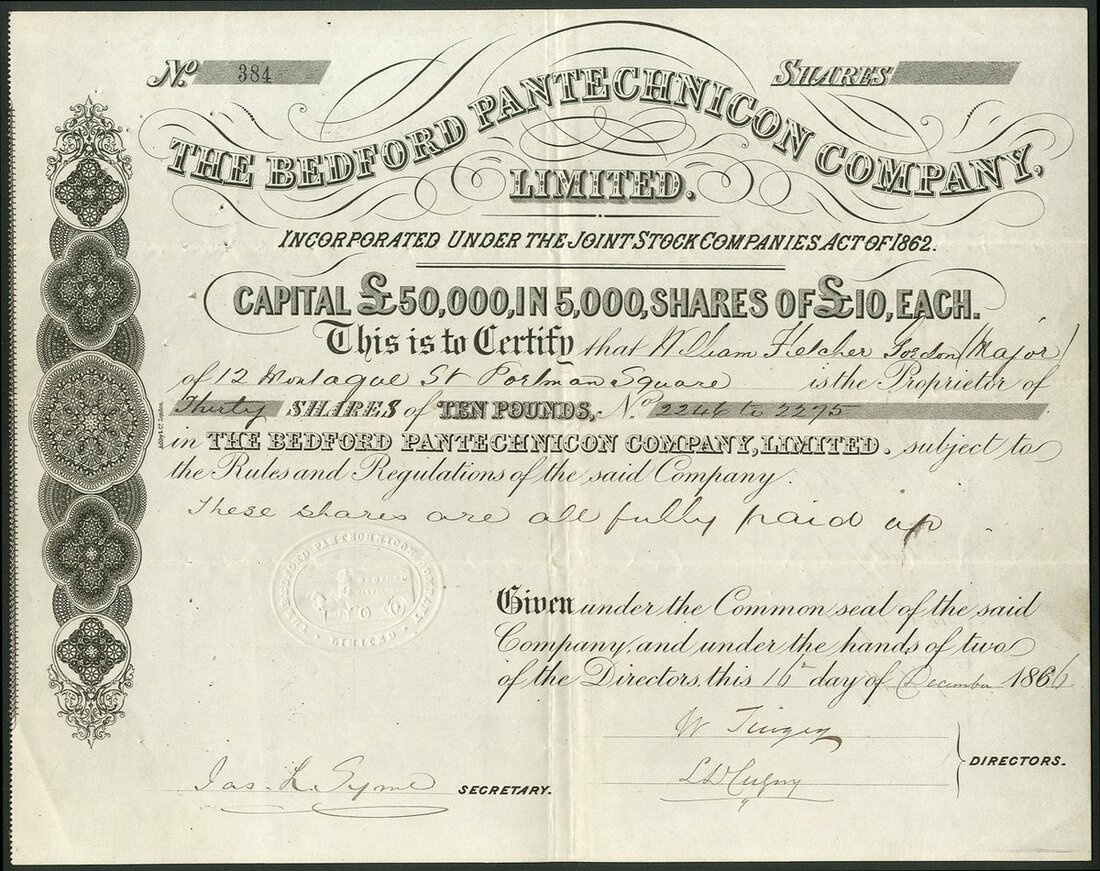 No 384
SHARES
THE BEDFORD PANTECHNICON COMPANY,
LIMITED.
INCORPORATED UNDER THE JOINT STOCK COMPANIES ACT OF 1862.
CAPITAL £50,000, IN 5,000, SHARES OF £10, EACH.
This is to Certify that William Fletcher Gordon (Major)
of 12 Montague St Portman Square is the Proprietor of
Thirty SHARES of TEN POUNDS, No. 2246 to 2275
in THE BEDFORD PANTECHNICON COMPANY, LIMITED. subject to
the Rules and Regulations of the said Company.
These shares are all fully paid up.
THE BEDFORD PANTECHNICON COMPANY
LIMITED
Given under the Common seal of the said
Company, and under the hands of two
of the Directors, this 16th day of December 1866
W Tingey
DIRECTORS.
Jas. L. Syme SECRETARY.